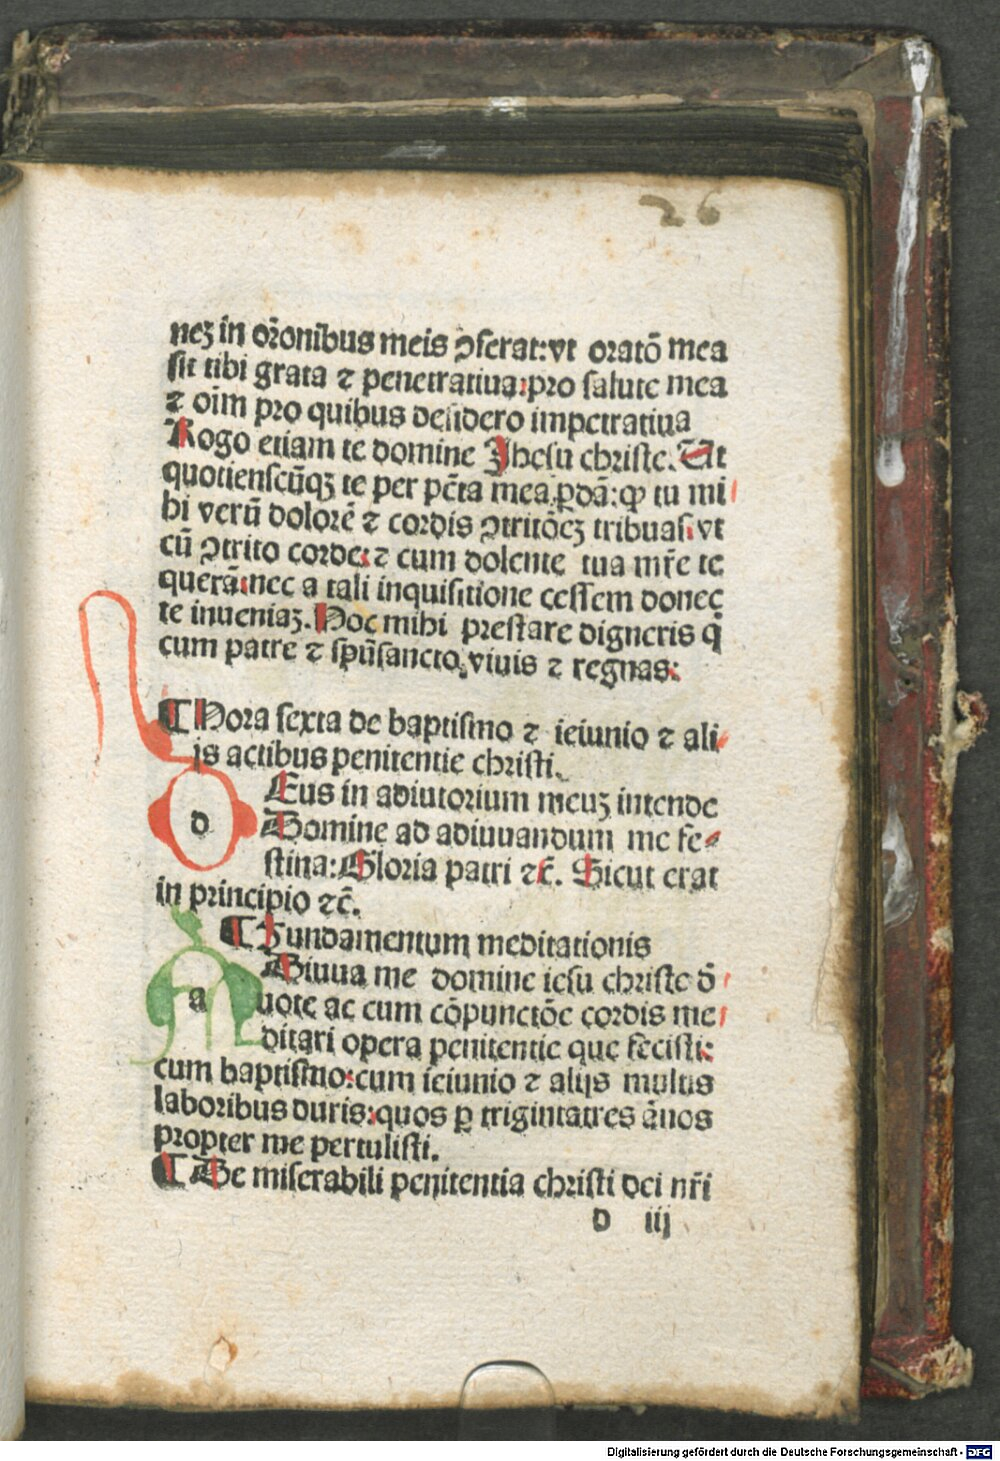 26
neꝫ in or̄onibus meis ꝯferat: vt oratō mea
sit tibi grata ⁊ penetratiua: pro salute mea
⁊ oīm pro quibus desidero impetratiua
Rogo etiam te domine Ihesu christe. Ut
quotienscūqꝫ te per pc̄ta mea ꝑdā: ꝙ tu mi
hi verū dolorē ⁊ cordis ꝯtritōēꝫ tribuas. vt
cū ꝯtrito corde: ⁊ cum dolente tua mr̄e te
querā: nec a tali inquisitione cessem donec
te inueniaꝫ. Hoc mihi prestare digneris q̄
cum patre ⁊ sp̄usancto. viuis ⁊ regnas:
¶ Hora sexta de baptismo ⁊ ieiunio ⁊ ali
is actibus penitentie christi.
d Eus in adiutorium meuꝫ intende
Domine ad adiuuandum me fe-
stina: Gloria patri ⁊c̄. Sicut erat
in principio ⁊c̄.
¶ Fundamentum meditationis
a Diuua me domine iesu christe d̄
uote ac cum cōpunctōe cordis me
ditari opera penitentie que fecisti:
cum baptismo: cum ieiunio ⁊ alijs multis
laboribus duris: quos ꝑ trigintatres ānos
propter me pertulisti.
¶ De miserabili penitentia christi dei nr̄i
d iij
Digitalisierung gefördert durch die Deutsche Forschungsgemeinschaft - DFG